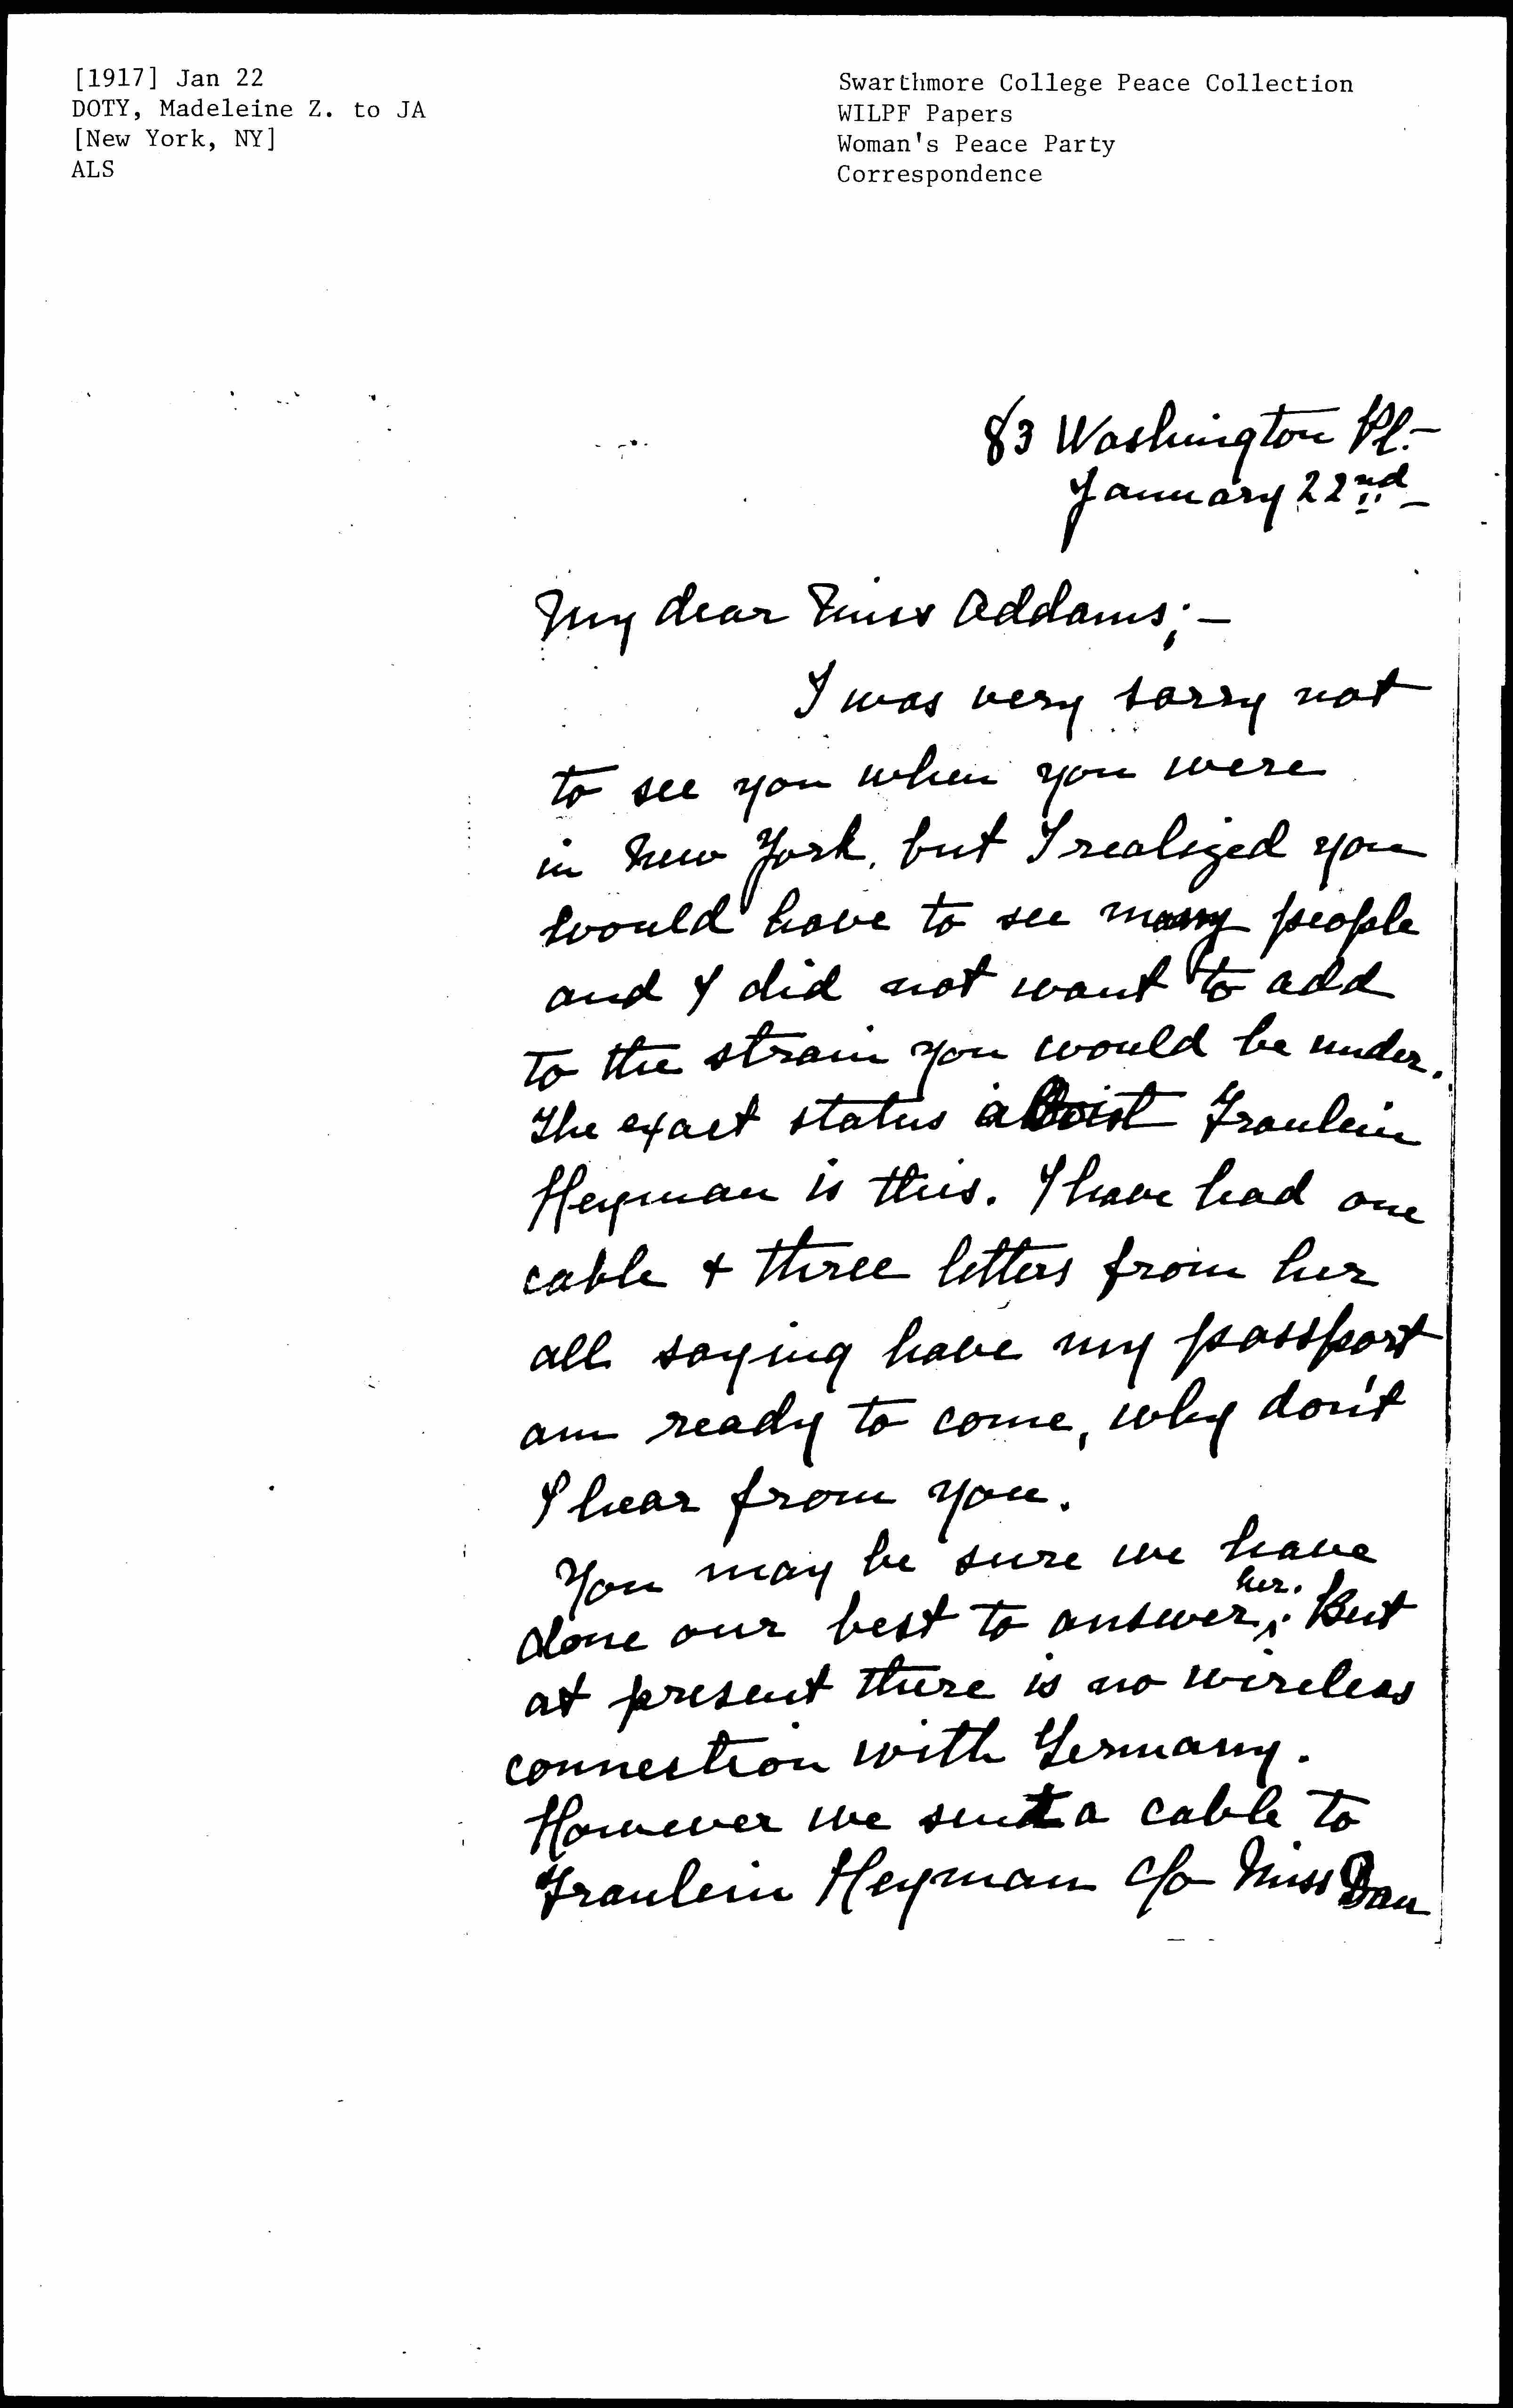 [1917] Jan 22
DOTY, Madeleine Z. to JA
[New York, NY]
ALS
Swarthmore College Peace Collection
WILPF Papers
Woman's Peace Party
Correspondence
83 Washington Pl.—
January 22nd—
My dear Miss Addams;—
I was very sorry not
to see you when you were
in New York, but I realized you
would have to see many people
and I did not want to add
to the strain you would be under.
The exact status about Fraulein
Heyman is this. I have had one
cable + three letters from her
all saying have my passport
am ready to come, why don't
I hear from you.
You may be sure we have
done our best to answer her. But
at present there is no wireless
connection with Germany.
However we sent a cable to
Fraulein Heyman c/o Miss Dan